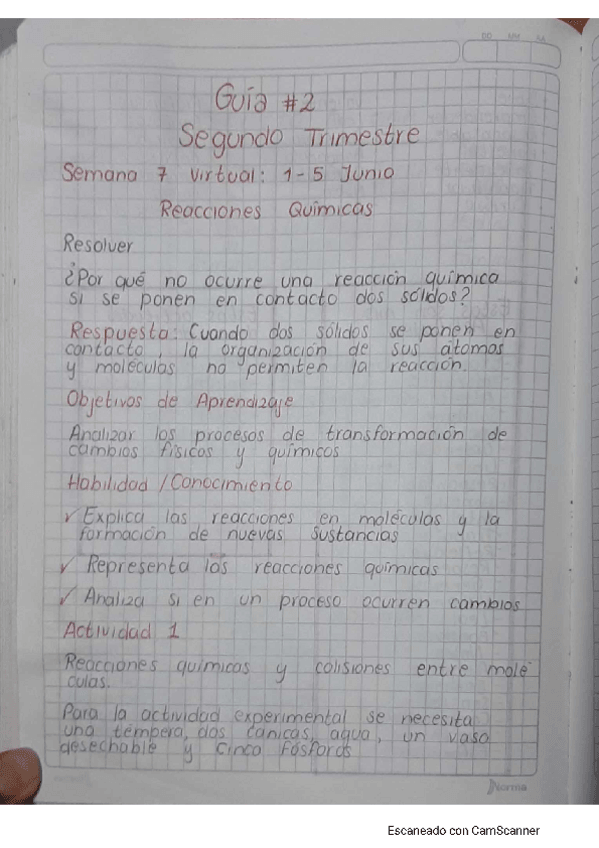 DD MM AA
Guía #2
Segundo Trimestre
Semana 7 Virtual: 1-5 Junio
Reacciones Químicas
Resolver
¿Por qué no ocurre una reacción química
si se ponen en contacto dos sólidos?
Respuesta: Cuando dos sólidos se ponen en
contacto, la organización de sus átomos
y moléculas no permiten la reacción.
Objetivos de Aprendizaje
Analizar los procesos de transformación de
cambios físicos y químicos
Habilidad / Conocimiento
✓ Explica las reacciones en moléculas y la
formación de nuevas sustancias
✓ Representa las reacciones químicas
✓ Analiza si en un proceso ocurren cambios
Actividad 1
Reacciones químicas y colisiones entre molé
culas.
Para la actividad experimental se necesita
una témpera, dos canicas, agua, un vaso
desechable y cinco fósforos
Norma
Escaneado con CamScanner